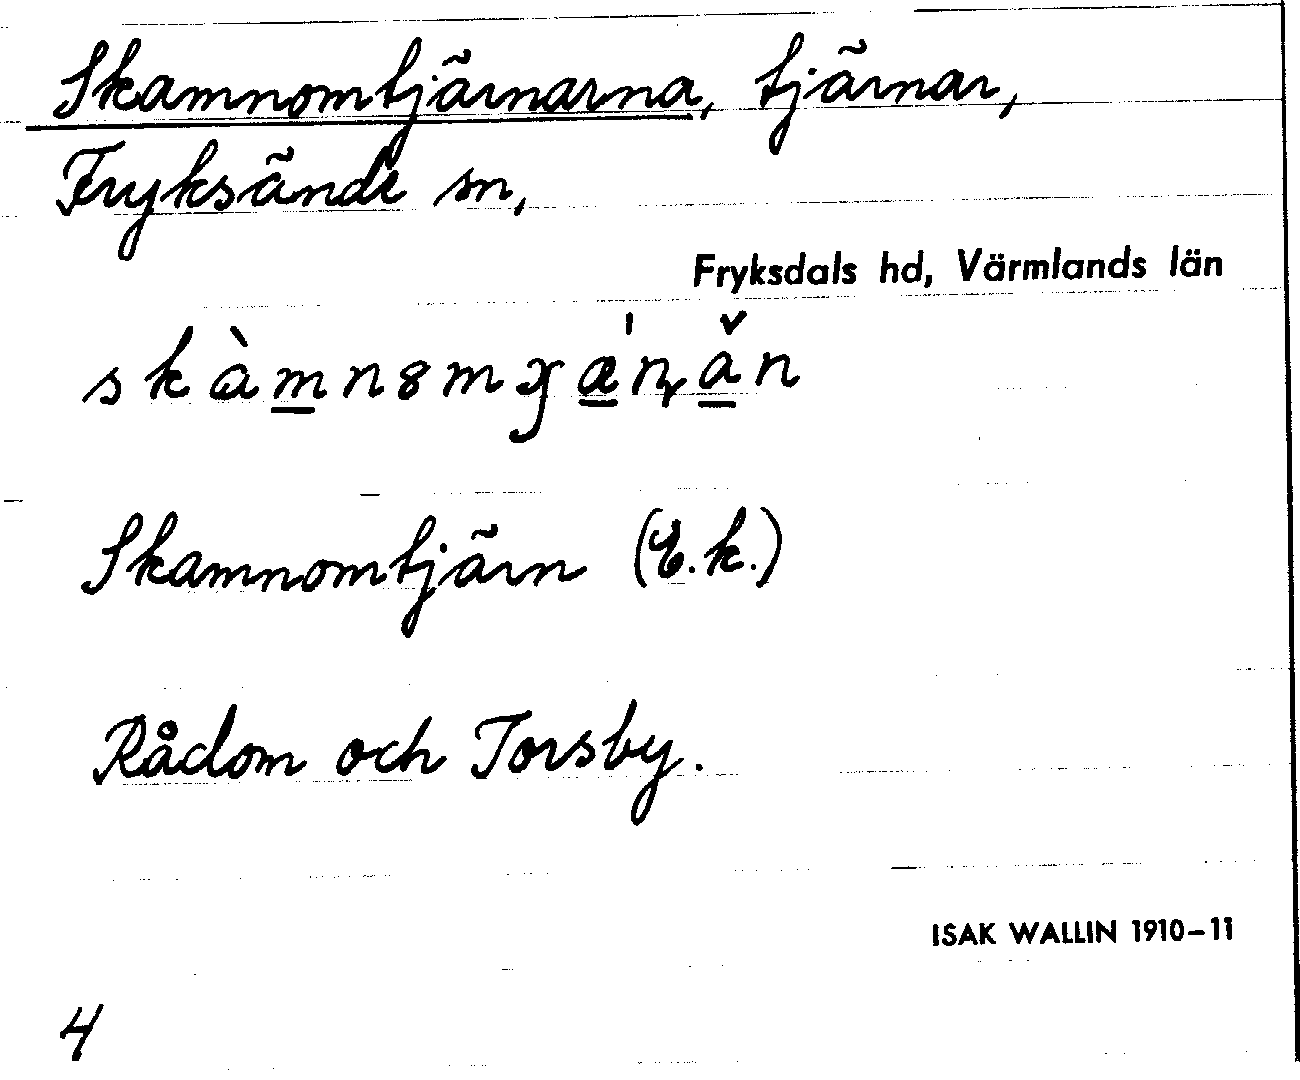 Skamnomtjärnarna, tjärnar,
Fryksände sn,
Fryksdals hd, Värmlands län
Skamnomtjärn (E.k.)
Rådom och Torsby.
ISAK WALLIN 1910–11
4